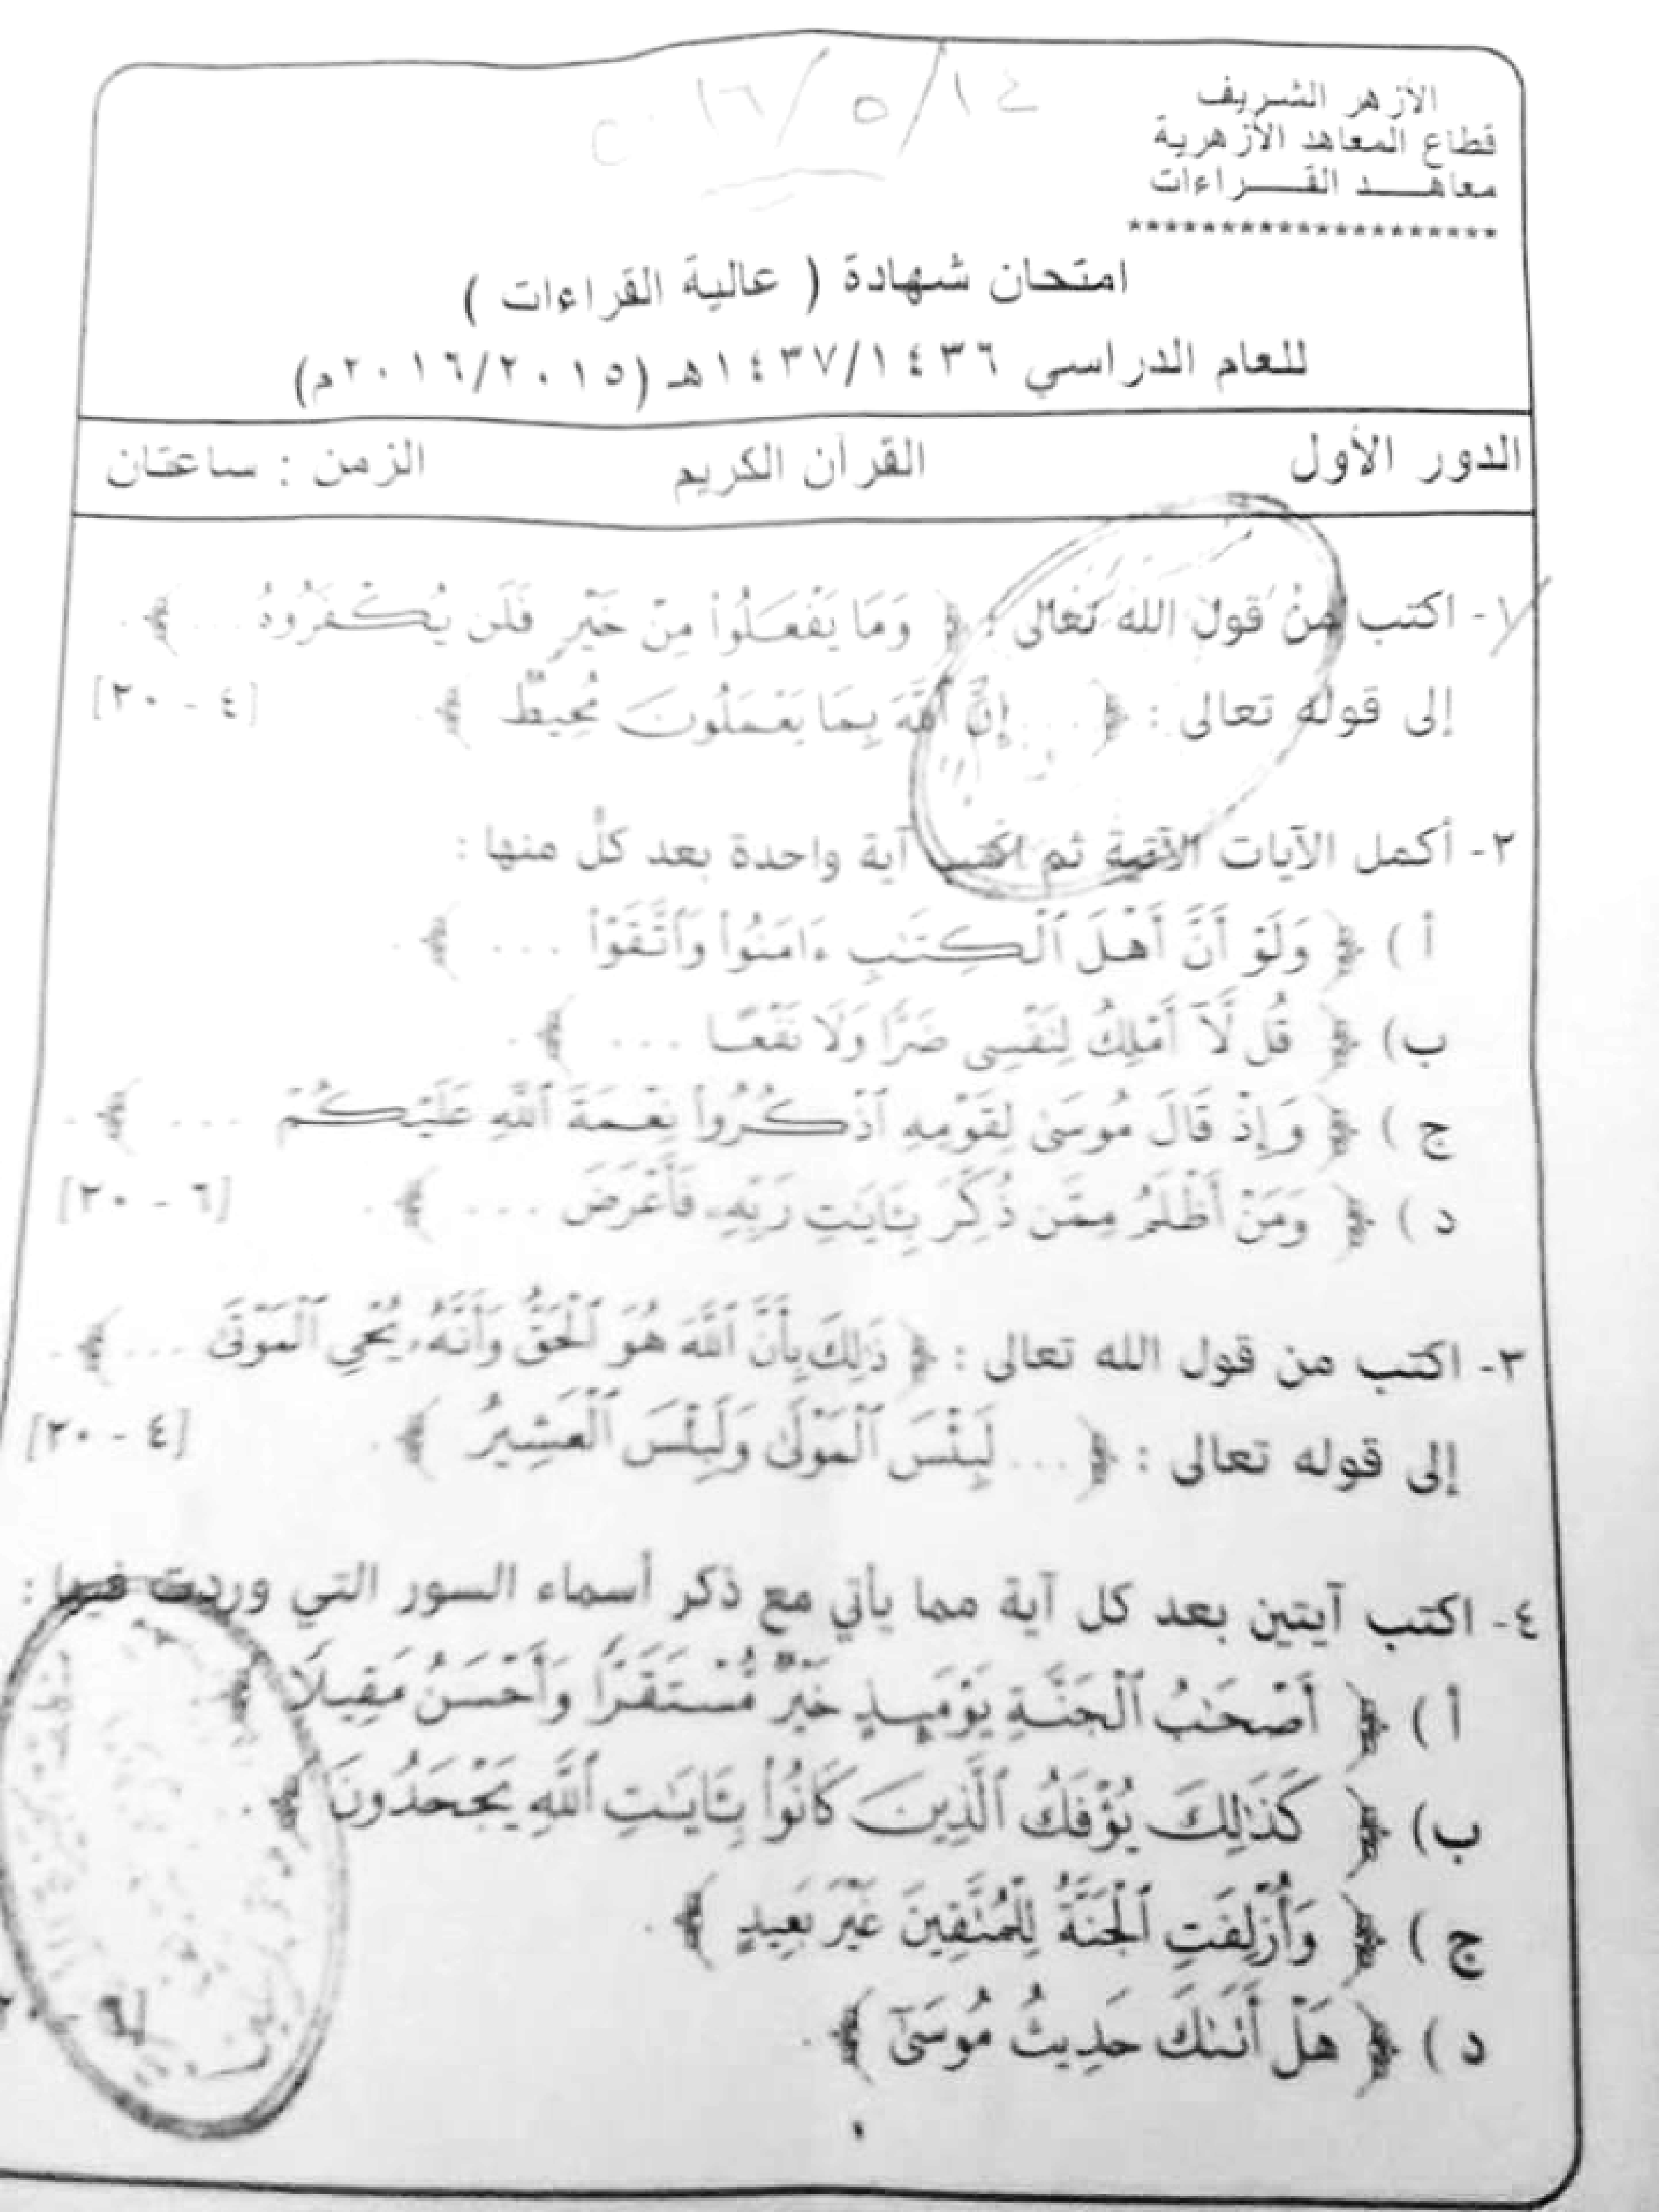 ١٤/٥/٢٠١٦
الأزهر الشريف
قطاع المعاهد الأزهرية
معاهد القراءات
********************
امتحان شهادة ( عالية القراءات )
للعام الدراسي ١٤٣٧/١٤٣٦هـ (٢٠١٦/٢٠١٥م)
الدور الأول القرآن الكريم الزمن : ساعتان
١- اكتب من قول الله تعالى : ﴿ وَمَا يَفْعَلُوا۟ مِنْ خَيْرٍ فَلَن يُكْفَرُوهُ ... ﴾ .
إلى قوله تعالى : ﴿ ... إِنَّ ٱللَّهَ بِمَا يَعْمَلُونَ مُحِيطٌ ﴾ . [٤ - ٢٠]
٢- أكمل الآيات الآتية ثم اكتب آية واحدة بعد كلٍّ منها :
أ ) ﴿ وَلَوْ أَنَّ أَهْلَ ٱلْكِتَٰبِ ءَامَنُوا۟ وَٱتَّقَوْا۟ ... ﴾ .
ب) ﴿ قُل لَّآ أَمْلِكُ لِنَفْسِى ضَرًّا وَلَا نَفْعًا ... ﴾ .
ج ) ﴿ وَإِذْ قَالَ مُوسَىٰ لِقَوْمِهِ ٱذْكُرُوا۟ نِعْمَةَ ٱللَّهِ عَلَيْكُمْ ... ﴾ .
د ) ﴿ وَمَنْ أَظْلَمُ مِمَّن ذُكِّرَ بِـَٔايَٰتِ رَبِّهِۦ فَأَعْرَضَ ... ﴾ . [٦ - ٢٠]
٣- اكتب من قول الله تعالى : ﴿ ذَٰلِكَ بِأَنَّ ٱللَّهَ هُوَ ٱلْحَقُّ وَأَنَّهُۥ يُحْىِ ٱلْمَوْتَىٰ ... ﴾ .
إلى قوله تعالى : ﴿ ... لَبِئْسَ ٱلْمَوْلَىٰ وَلَبِئْسَ ٱلْعَشِيرُ ﴾ . [٤ - ٢٠]
٤- اكتب آيتين بعد كل آية مما يأتي مع ذكر أسماء السور التي وردت فيها :
أ ) ﴿ أَصْحَٰبُ ٱلْجَنَّةِ يَوْمَئِذٍ خَيْرٌ مُّسْتَقَرًّا وَأَحْسَنُ مَقِيلًا ﴾ .
ب) ﴿ كَذَٰلِكَ يُؤْفَكُ ٱلَّذِينَ كَانُوا۟ بِـَٔايَٰتِ ٱللَّهِ يَجْحَدُونَ ﴾ .
ج ) ﴿ وَأُزْلِفَتِ ٱلْجَنَّةُ لِلْمُتَّقِينَ غَيْرَ بَعِيدٍ ﴾ .
د ) ﴿ هَلْ أَتَىٰكَ حَدِيثُ مُوسَىٰٓ ﴾ .
١